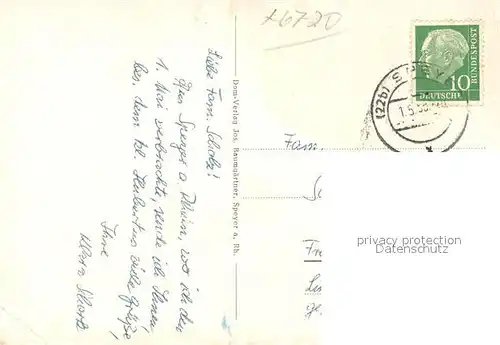 x6720
Liebe Fam. Scholz!
Aus Speyer a. Rhein, wo ich den
1. Mai verbrachte, sende ich Ihnen,
bes. dem kl. Hubertus viele Grüße,
Ihre
Dom-Verlag Jos. Baumgärtner, Speyer a. Rh.
10
DEUTSCHE
BUNDESPOST
(22b) SPEY
1.5.
Fam.
privacy protection
Datenschutz